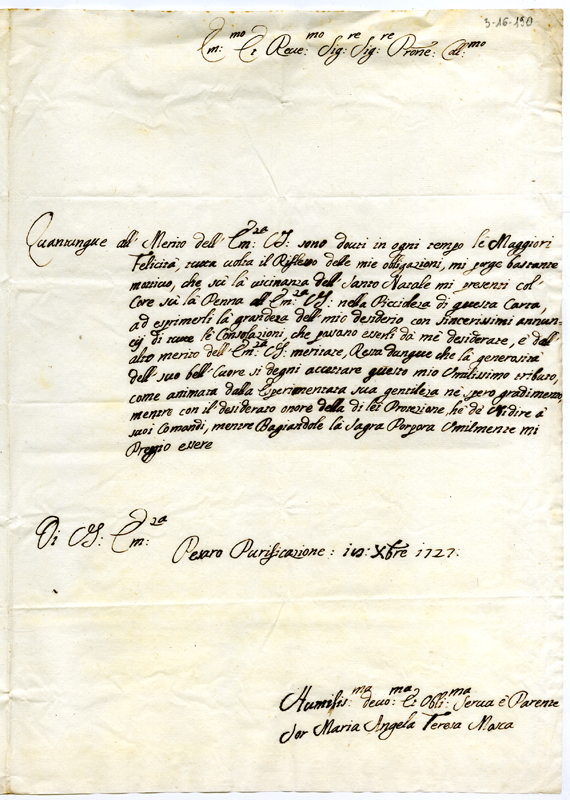 3-16-190
Em:mo Et Reue:mo Sig:re Sig:re Prone: Coll:mo
Quantungue all' Merito dell' Em:za VS: sono douti in ogni tempo le Maggiori
Felicità, tutta uolta il Riflesso delle mie obligazioni, mi porge bastante
motiuo, che sù la uicinanza del Santo Natale mi presenti col'
Core sù la Penna all' Em:za VS: nella Piccideza di questa Carta,
ad esprimerli la grandeza dell' mio desiderio con sincerissimi annun=
cij di tutte le Consolazioni, che posano eserli da mè desiderate, è dall'
altro merito dell' Em:za VS: meritate, Resta dungue che la generosità
dell' suo bell' Cuore si degni accettare questo mio Vmilissimo tributo,
come animata dalla Esperimentata sua gentileza nè spero gradimento,
mentre con il desiderato onore della di lei Protezione, hò dà Vbdire à
suoi Comandi, mentre Bagiandole là Sagra Porpora Vmilmente mi
Preggio essere
Di VS: Em:za
Pesaro Purificazione: 10: Xbre 1727:
Humilis:ma deuo:ma Et Obli:ma Serua è Parente
Sor Maria Angela Teresa Mosca